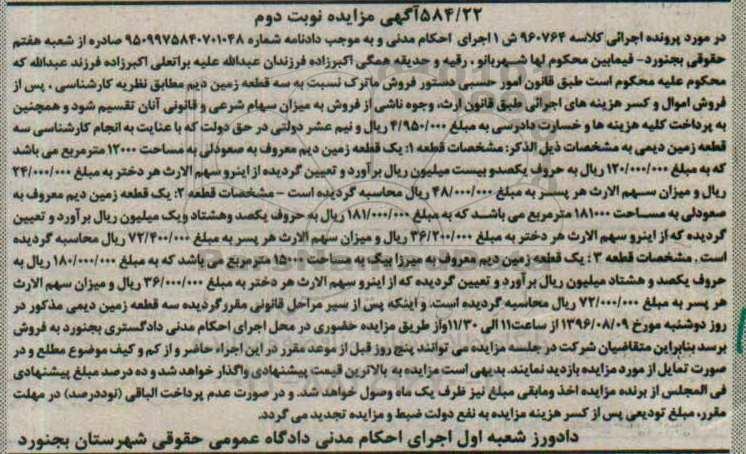 ۵۸۴/۲۲آگهی مزایده نوبت دوم
در مورد پرونده اجرائی کلاسه ۹۶۰۷۶۴ ش ۱ اجرای احکام مدنی و به موجب دادنامه شماره ۹۵۰۹۹۷۵۸۴۰۷۰۱۰۴۸ صادره از شعبه هفتم
حقوقی بجنورد- فیمابین محکوم لها شهربانو ، رقیه و حدیقه همگی اکبرزاده فرزندان عبدالله علیه براتعلی اکبرزاده فرزند عبدالله که
محکوم علیه محکوم است طبق قانون امور حسبی دستور فروش ماترک نسبت به سه قطعه زمین دیم مطابق نظریه کارشناسی ، پس از
فروش اموال و کسر هزینه های اجرائی طبق قانون ارث، وجوه ناشی از فروش به میزان سهام شرعی و قانونی آنان تقسیم شود و همچنین
به پرداخت کلیه هزینه ها و خسارت دادرسی به مبلغ ۴/۹۵۰/۰۰۰ ریال و نیم عشر دولتی در حق دولت که با عنایت به انجام کارشناسی سه
قطعه زمین دیمی به مشخصات ذیل الذکر: مشخصات قطعه ۱: یک قطعه زمین دیم معروف به صعودلی به مساحت ۱۲۰۰۰ مترمربع می باشد
که به مبلغ ۱۲۰/۰۰۰/۰۰۰ ریال به حروف یکصدو بیست میلیون ریال برآورد و تعیین گردیده از اینرو سهم الارث هر دختر به مبلغ ۲۴/۰۰۰/۰۰۰
ریال و میزان سهم الارث هر پسر به مبلغ ۴۸/۰۰۰/۰۰۰ ریال محاسبه گردیده است - مشخصات قطعه ۲: یک قطعه زمین دیم معروف به
صعودلی به مساحت ۱۸۱۰۰۰ مترمربع می باشد که به مبلغ ۱۸۱/۰۰۰/۰۰۰ ریال به حروف یکصد وهشتاد ویک میلیون ریال برآورد و تعیین
گردیده که از اینرو سهم الارث هر دختر به مبلغ ۳۶/۲۰۰/۰۰۰ ریال و میزان سهم الارث هر پسر به مبلغ ۷۲/۴۰۰/۰۰۰ ریال محاسبه گردیده
است . مشخصات قطعه ۳ : یک قطعه زمین دیم معروف به میرزا بیک به مساحت ۱۵۰۰۰ مترمربع می باشد که به مبلغ ۱۸۰/۰۰۰/۰۰۰ ریال به
حروف یکصد و هشتاد میلیون ریال برآورد و تعیین گردیده که از اینرو سهم الارث هر دختر به مبلغ ۳۶/۰۰۰/۰۰۰ ریال و میزان سهم الارث
هر پسر به مبلغ ۷۲/۰۰۰/۰۰۰ ریال محاسبه گردیده است. و اینکه پس از سیر مراحل قانونی مقررگردیده سه قطعه زمین دیمی مذکور در
روز دوشنبه مورخ ۱۳۹۶/۰۸/۰۹ از ساعت۱۱ الی ۱۱/۳۰ واز طریق مزایده حضوری در محل اجرای احکام مدنی دادگستری بجنورد به فروش
برسد بنابراین متقاضیان شرکت در جلسه مزایده می توانند پنج روز قبل از موعد مقرر در این اجراء حاضر و از کم و کیف موضوع مطلع و در
صورت تمایل از مورد مزایده بازدید نمایند. بدیهی است مزایده به بالاترین قیمت پیشنهادی واگذار خواهد شد و ده درصد مبلغ پیشنهادی
فی المجلس از برنده مزایده اخذ ومابقی مبلغ نیز ظرف یک ماه وصول خواهد شد. و در صورت عدم پرداخت الباقی (نوددرصد) در مهلت
مقرر، مبلغ تودیعی پس از کسر هزینه مزایده به نفع دولت ضبط و مزایده تجدید می گردد.
دادورز شعبه اول اجرای احکام مدنی دادگاه عمومی حقوقی شهرستان بجنورد